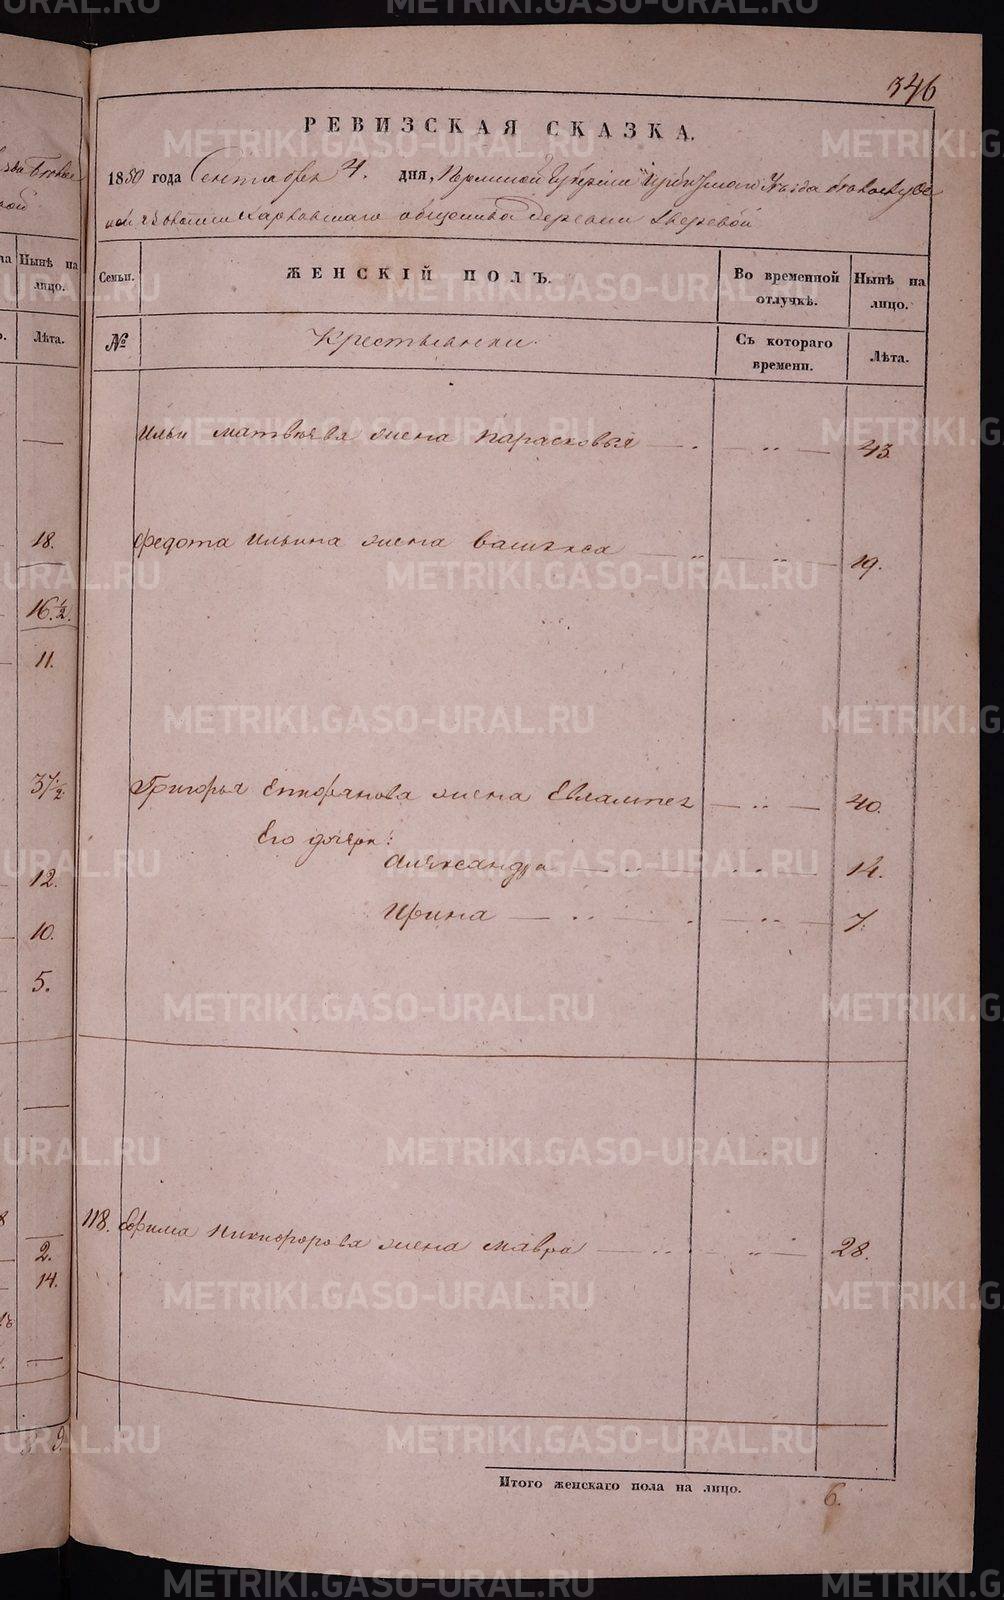 346
РЕВИЗСКАЯ СКАЗКА.
1850 года Сентября 4. дня, Пермской Губернии Ирбитскаго Уезда
волости Харловскаго общества деревни Зверевой
Семьи. ЖЕНСКІЙ ПОЛЪ. Во временной отлучкѣ. Нынѣ на лицо.
№ Крестьянски. Съ котораго времени. Лѣта.
Ильи Матвѣева жена Парасковья 43.
Федота Ильина жена Василиса 19.
Григорья жена Евлампея 40.
Его дочери:
Александра 14.
Ирина 7.
118. Ефима Никифорова жена Мавра 28.
Итого женскаго пола на лицо. 6.
Нынѣ на лицо.
Лѣта.
18.
16 ½.
11.
37 ½
12.
10.
5.
2.
14.
METRIKI.GASO-URAL.RU